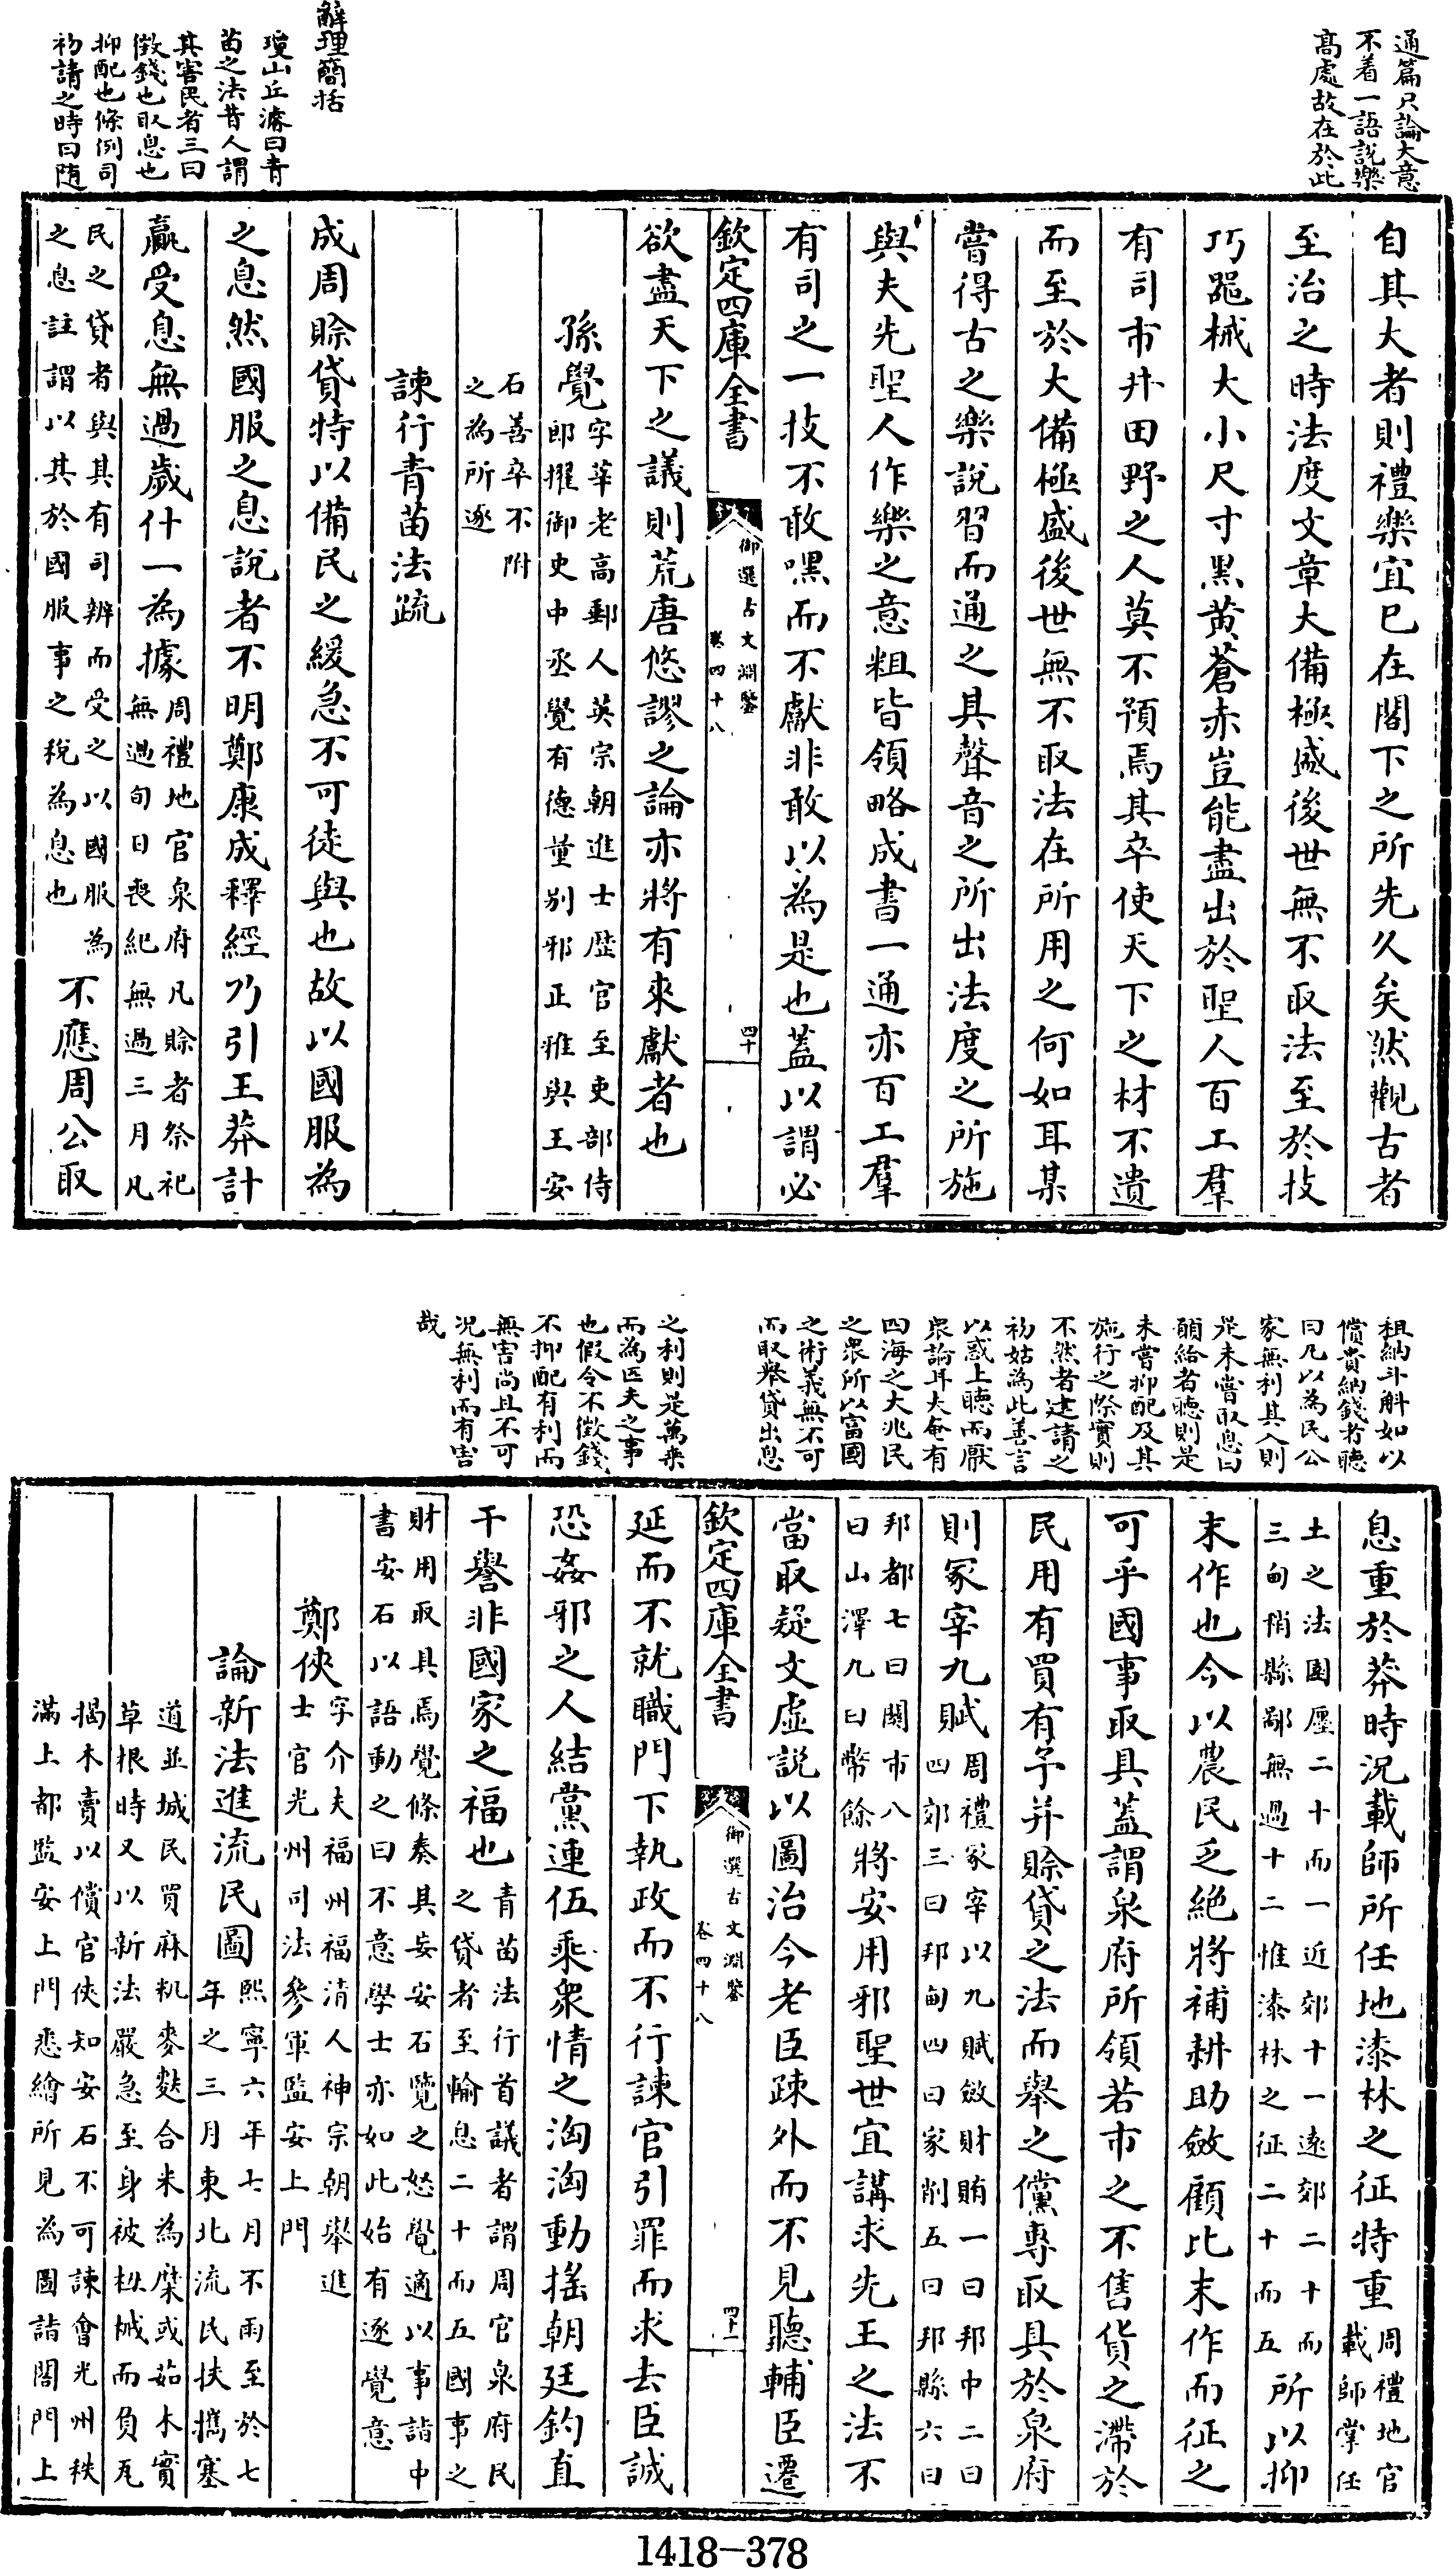 通篇只論大意
不着一語說樂
高處故在於此
辭理簡括
瓊山丘濬曰青
苗之法昔人謂
其害民者三曰
徵錢也取息也
抑配也條例司
初請之時曰隨
自其大者則禮樂宜已在閣下之所先久矣然觀古者
至治之時法度文章大備極盛後世無不取法至於技
巧噐械大小尺寸黑黄蒼赤豈能盡出於聖人百工羣
有司市井田野之人莫不預焉其卒使天下之材不遺
而至於大備極盛後世無不取法在所用之何如耳某
嘗得古之樂說習而通之其聲音之所出法度之所施
與夫先聖人作樂之意粗皆領略成書一通亦百工羣
有司之一技不敢嘿而不獻非敢以為是也蓋以謂必
欽定四庫全書
御選古文淵鑒
卷四十八
四十
欲盡天下之議則荒唐悠謬之論亦將有來獻者也
孫覺字莘老高郵人英宗朝進士歴官至吏部侍
郎擢御史中丞覺有德量别邪正雅與王安
石善卒不附
之為所逐
諫行青苗法疏
成周賒貸特以備民之緩急不可徒與也故以國服為
之息然國服之息說者不明鄭康成釋經乃引王莽計
贏受息無過歲什一為據周禮地官泉府凡賒者祭祀
無過旬日喪紀無過三月凡
民之貸者與其有司辨而受之以國服為
之息註謂以其於國服事之稅為息也不應周公取
租納斗斛如以
償貴納錢者聽
曰凡以為民公
家無利其入則
是未嘗取息曰
願給者聽則是
未嘗抑配及其
施行之際實則
不然者建請之
初姑為此善言
以惑上聽而厭
衆論耳夫奄有
四海之大兆民
之衆所以富國
之術義無不可
而取舉貸出息
之利則是萬乗
而為匹夫之事
也假令不徵錢
不抑配有利而
無害尚且不可
况無利而有害
哉
息重於莽時況載師所任地漆林之征特重周禮地官
載師掌任
土之法園廛二十而一近郊十一逺郊二十而
三甸稍縣鄙無過十二惟漆林之征二十而五所以抑
末作也今以農民乏絶將補耕助斂顧比末作而征之
可乎國事取具蓋謂泉府所領若市之不售貨之滯於
民用有買有予并賒貸之法而舉之儻專取具於泉府
則冢宰九賦周禮冢宰以九賦斂財賄一曰邦中二曰
四郊三曰邦甸四曰家削五曰邦縣六曰
邦都七曰關市八
曰山澤九曰幣餘將安用邪聖世宜講求先王之法不
當取疑文虛說以圖治今老臣疎外而不見聽輔臣遷
欽定四庫全書
御選古文淵鑒
卷四十八
四十一
延而不就職門下執政而不行諫官引罪而求去臣誠
恐姦邪之人結黨連伍乘衆情之洶洶動搖朝廷釣直
干譽非國家之福也青苗法行首議者謂周官泉府民
之貸者至輸息二十而五國事之
財用取具焉覺條奏其妄安石覽之怒覺適以事詣中
書安石以語動之曰不意學士亦如此始有逐覺意
鄭俠字介夫福州福清人神宗朝舉進
士官光州司法參軍監安上門
論新法進流民圖熙寧六年七月不雨至於七
年之三月東北流民扶携塞
道並城民買麻籸麥麩合米為糜或茹木實
草根時又以新法嚴急至身被枷械而負瓦
揭木賣以償官俠知安石不可諫會光州秩
滿上都監安上門悉繪所見為圖詣閤門上
1418-378